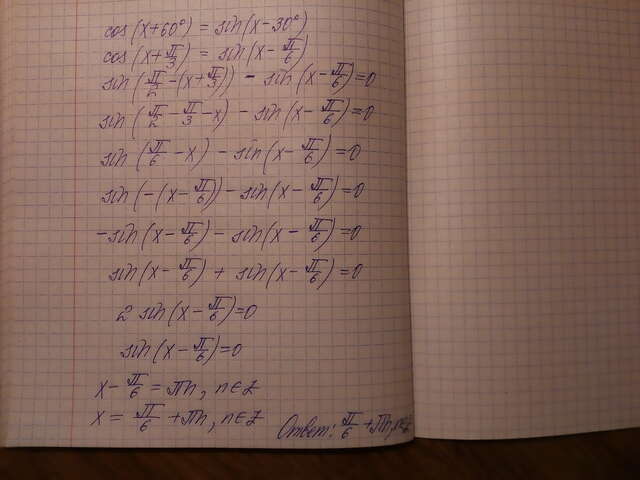 cos(x+60°) = sin(x-30°)
cos(x+π/3) = sin(x-π/6)
sin(π/2-(x+π/3)) - sin(x-π/6)=0
sin(π/2-π/3-x) - sin(x-π/6)=0
sin(π/6-x) - sin(x-π/6)=0
sin(-(x-π/6))-sin(x-π/6)=0
-sin(x-π/6)-sin(x-π/6)=0
sin(x-π/6)+sin(x-π/6)=0
2 sin(x-π/6)=0
sin(x-π/6)=0
x-π/6=πn, n∈Z
x=π/6+πn, n∈Z Ответ: π/6+πn, n∈Z